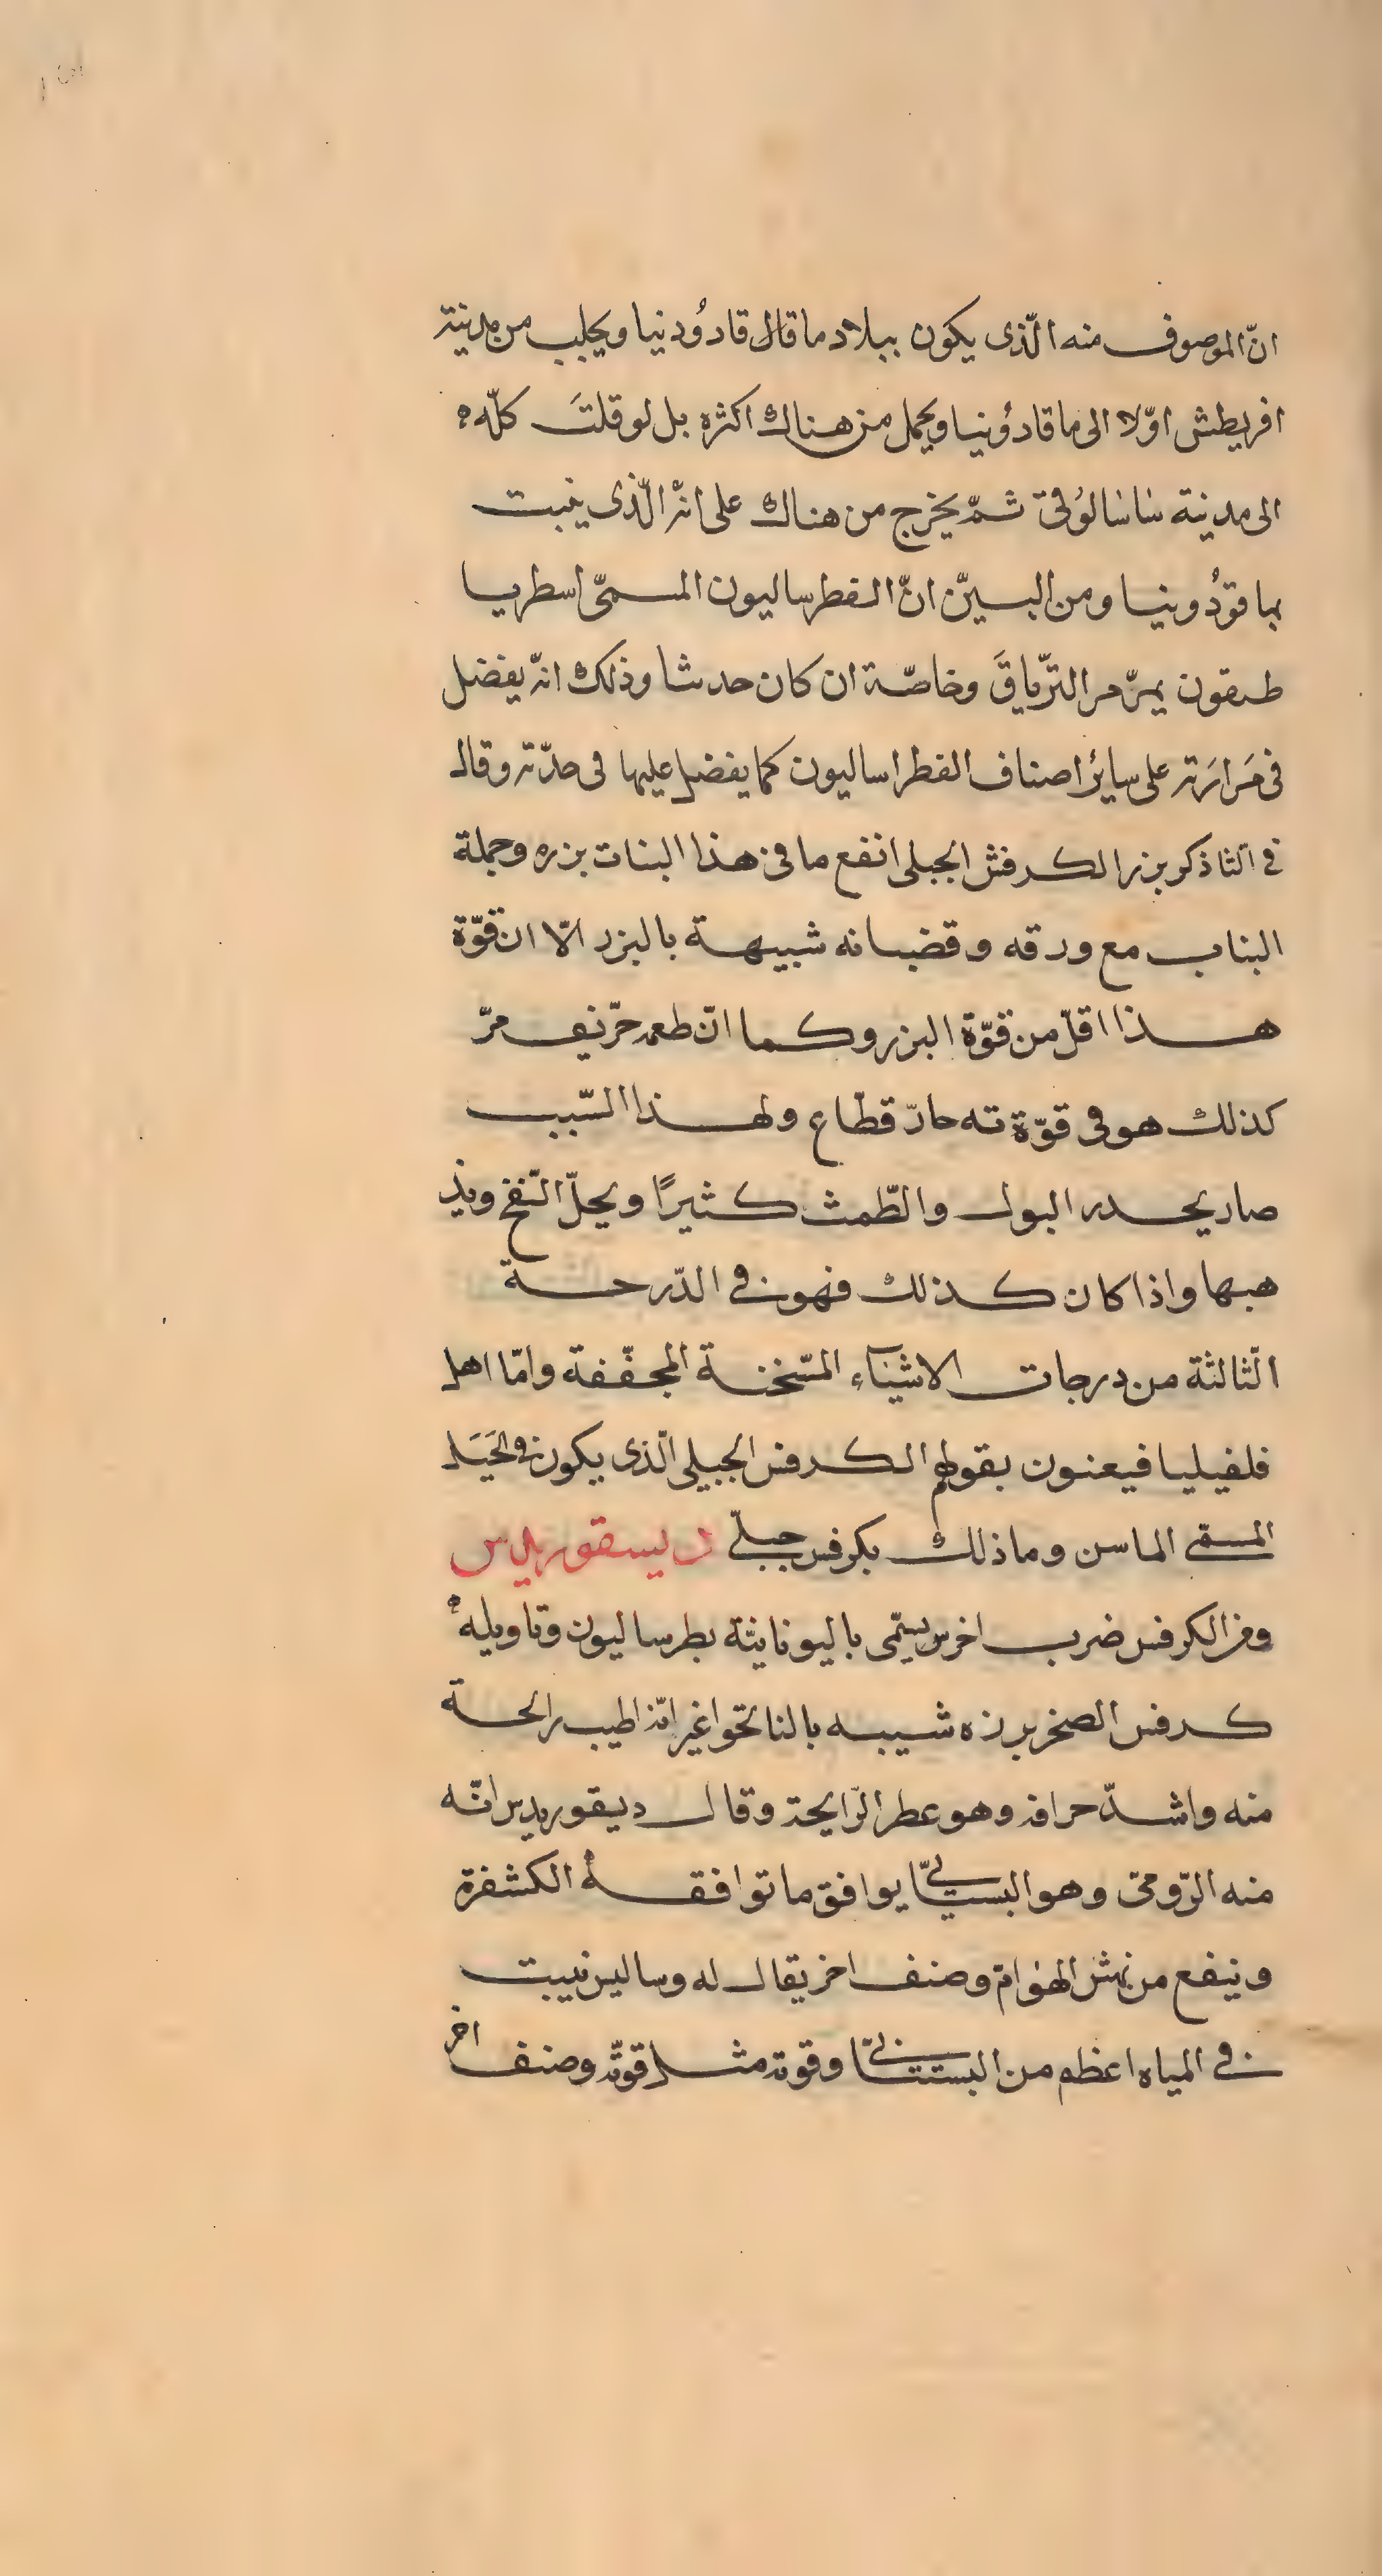 انّ الموصوف منه الّذى يكون ببلاد ما قال قادوُدنيا ويجلب من مدينة
افريطش اوّلا الى ما قادوُنيا ويحمل من هناك اكثره بل لو قلتَ كلّه
الى مدينة ساسالوُقى ثمّ يخرج من هناك على انّه الّذى ينبت
بما قودُونيا ومن البيّن انّ الفطرساليون المسمّى اسطريا
طيقون يمرّمر الترّياقَ وخاصّة ان كان حدثا وذلك انّه يفضل
فى مَرارَته على سايرُ اصناف الفطراساليون كما يفضل عليها فى حدّته وقال
فى الثا ذكر بزر الكرفش الجبلى انفع ما فى هذا البنات بزره وجملة
البناب مع ورقه وقضبانه شبيهة بالبزر الّا ان قوّة
هذا اقلّ من قوّة البزر وكما انّ طعمه حرّيف مرّ
كذلك هو فى قوّة ته حارّ قطّاع ولهذا السّبب
صار يحدر البول والطّمث كثيرًا ويحلّ النّفخ ويذ
هبها واذا كان كذلك فهو فى الدّرحة
الثالثة من درجات الاشيآء المسّخنة المجفّفة وامّا اهل
فلفيليا فيعنون بقولهم الكرفس الجبيلى الّذى يكون فى الجَبَل
المسمّى الماسن وما ذلك بكرفس جبلّى ديسقوريدس
ومن الكرفس ضرب اخر يسمّى باليونانيّة بطرساليون وتاويله
كرفس الصخر بزره شبيبه بالنانخوا غير انّه اطيب رايحة
منه واشدّ حرافة وهو عطر الرّايحة وقال ديقوريدس انّه
منه الرّومىّ وهو البستانىّ يوافق ما توافقهُ الكشفرة
وينفع من نهش الهوامّ وصنف اخر يقال له وساليس نبيت
فى المياه اعظم من البستانىّ وقوته مثل قوتّه وصنف اخر